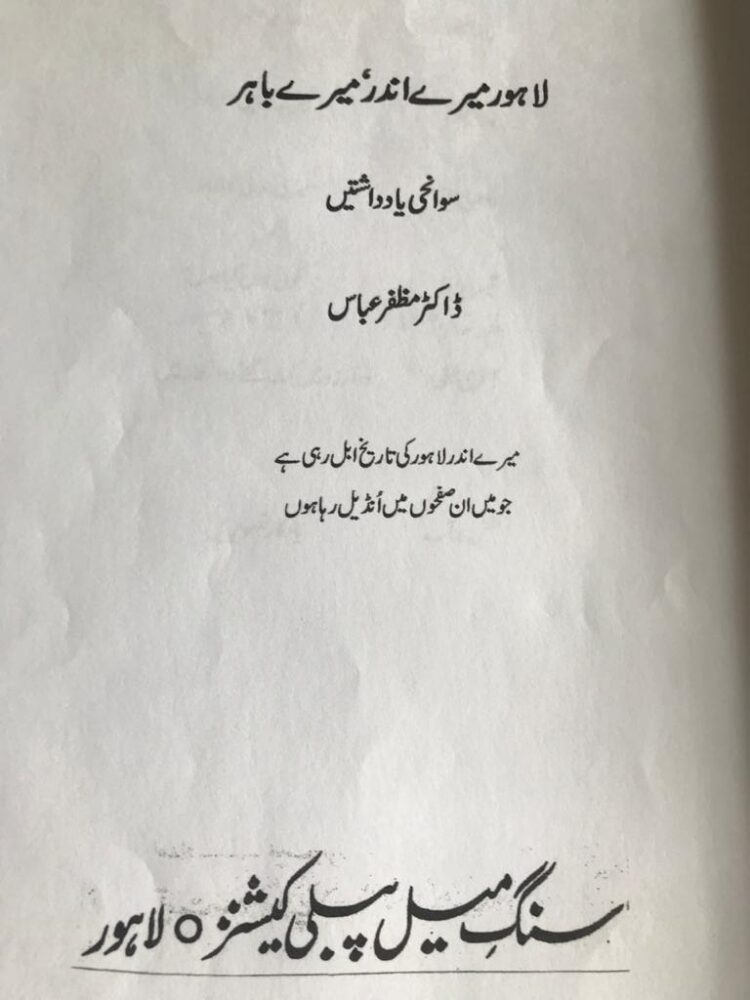 لاہور میرے اندر، میرے باہر
سوانحی یادداشتیں
ڈاکٹر مظفر عباس
میرے اندر لاہور کی تاریخ ابل رہی ہے
جو میں ان صفحوں میں اُنڈیل رہا ہوں
سنگِ میل پبلی کیشنز ○ لاہور